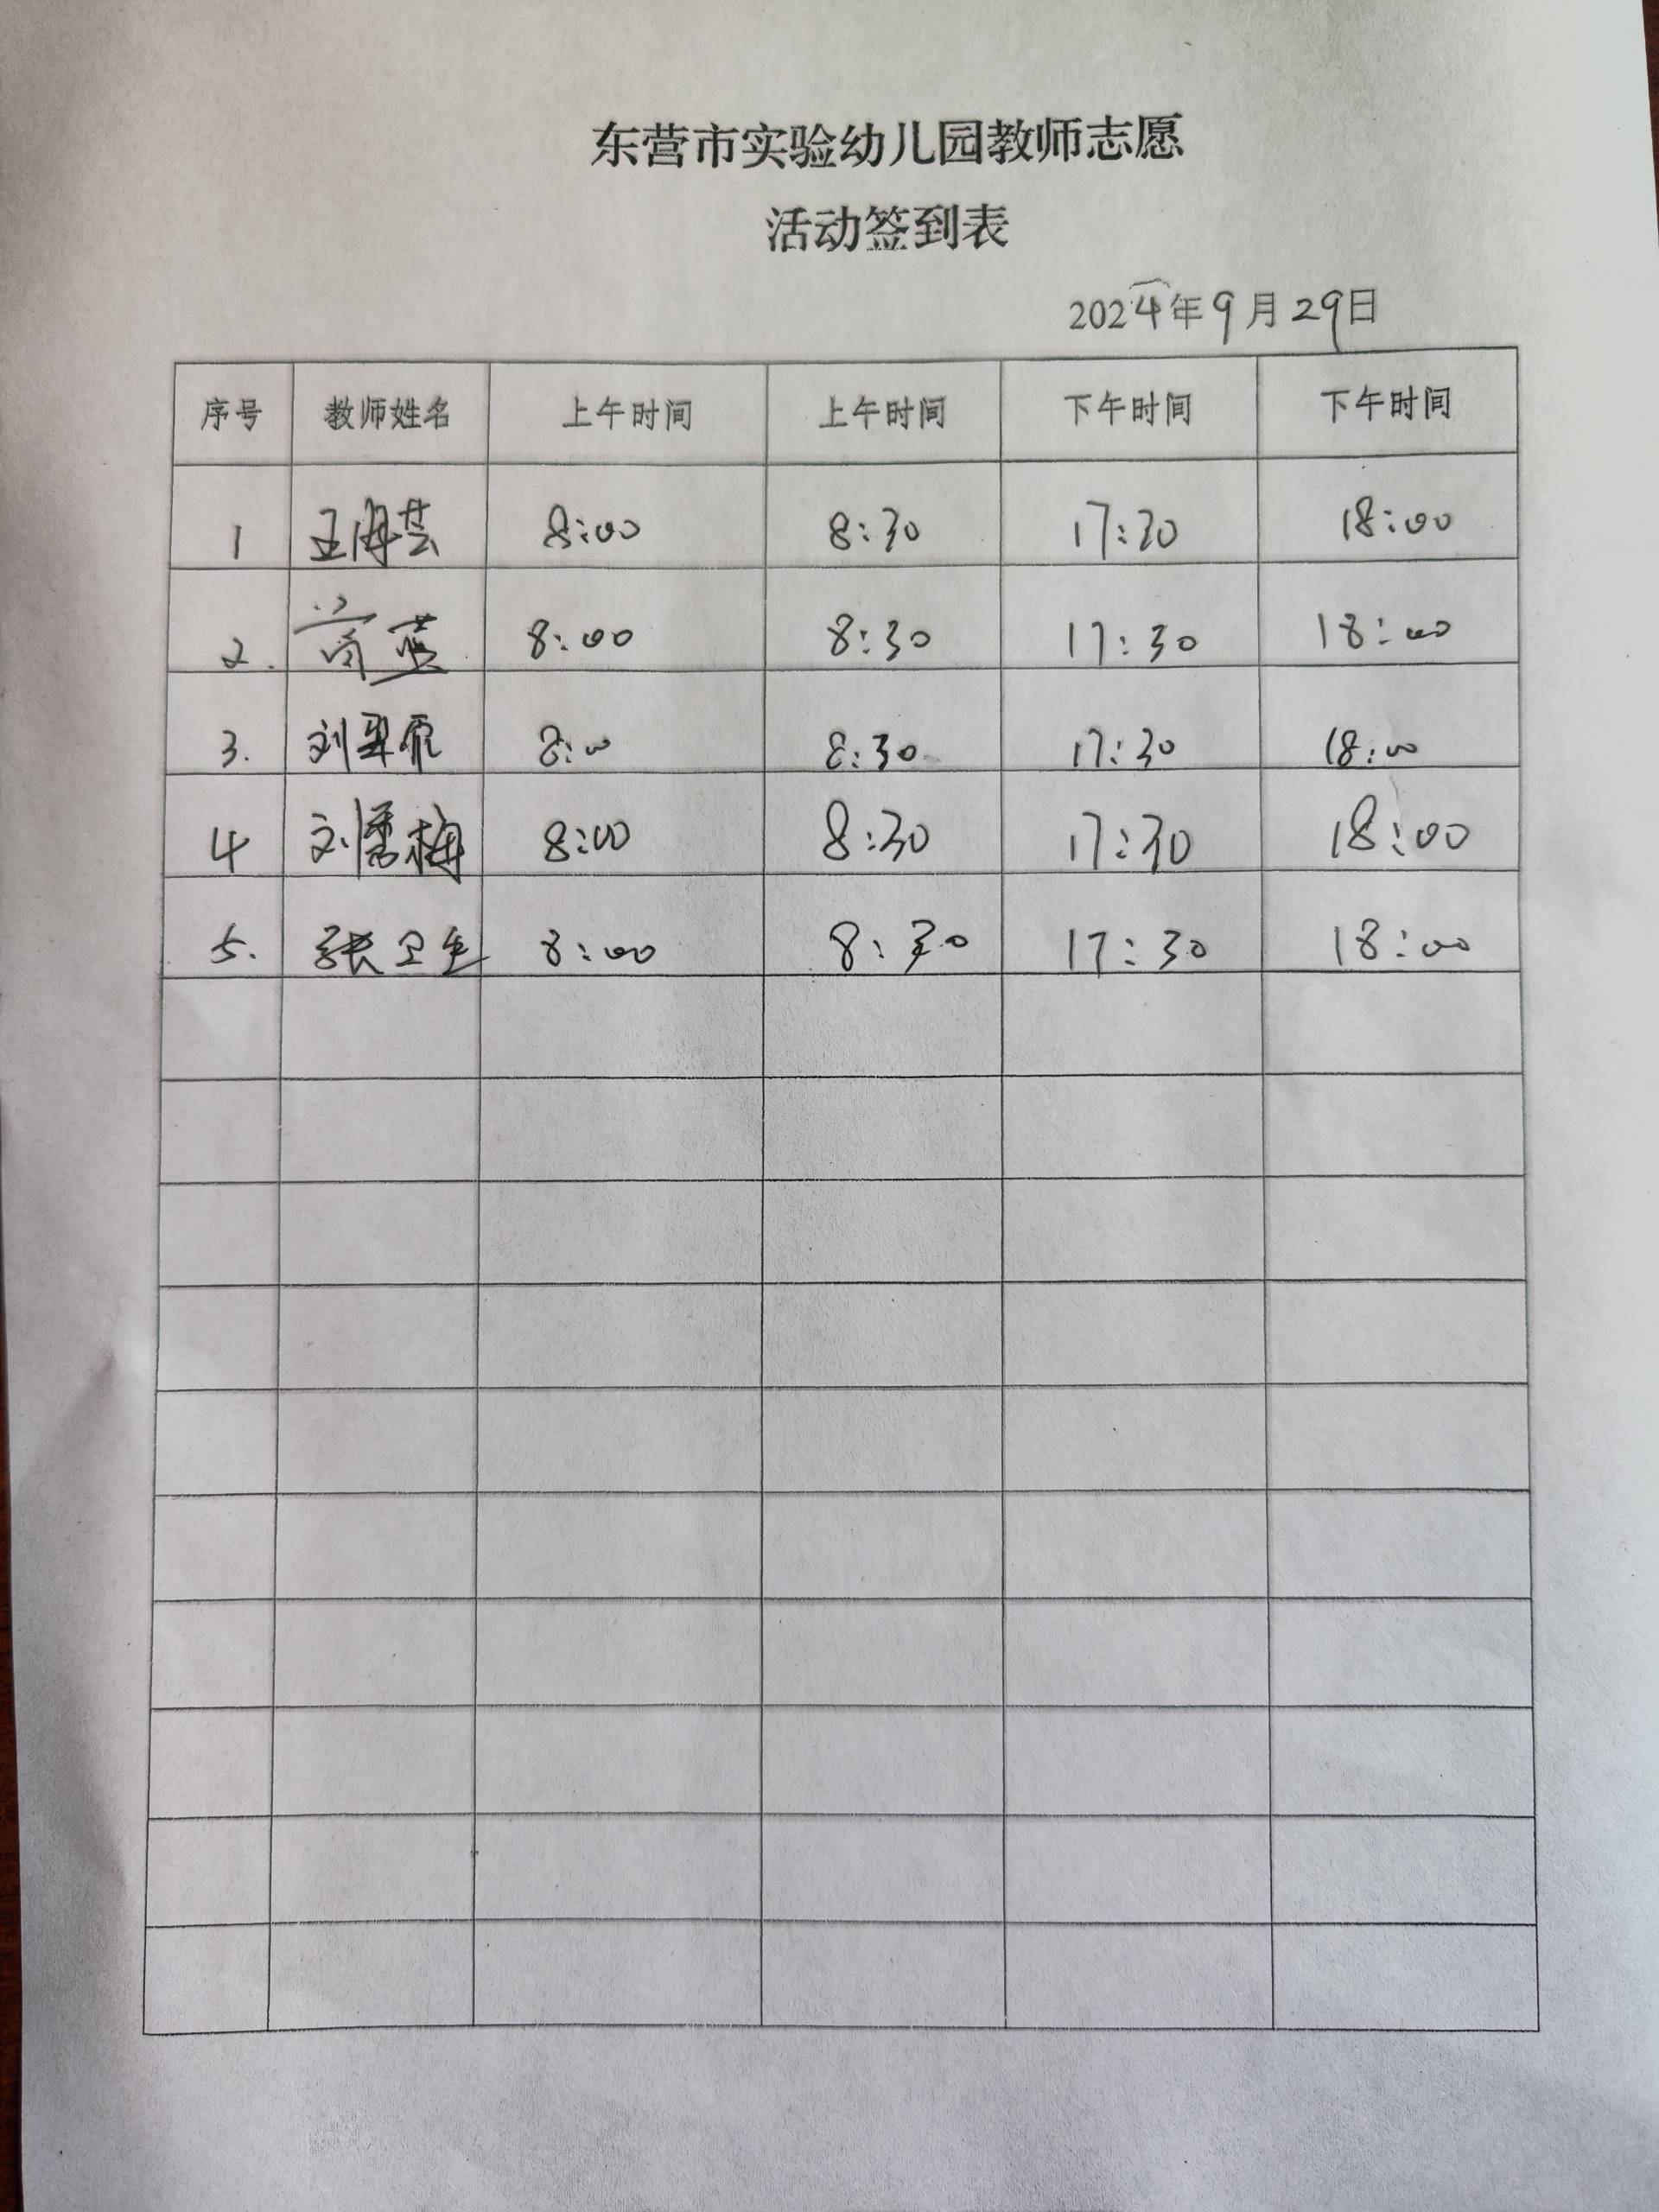 东营市实验幼儿园教师志愿
活动签到表
2024年9月29日
序号 教师姓名 上午时间 上午时间 下午时间 下午时间
1 王海芸 8:00 8:30 17:30 18:00
2. 蓝 8:00 8:30 17:30 18:00
3. 刘 8:00 8:30 17:30 18:00
4 刘秀梅 8:00 8:30 17:30 18:00
5. 张卫生 8:00 8:30 17:30 18:00